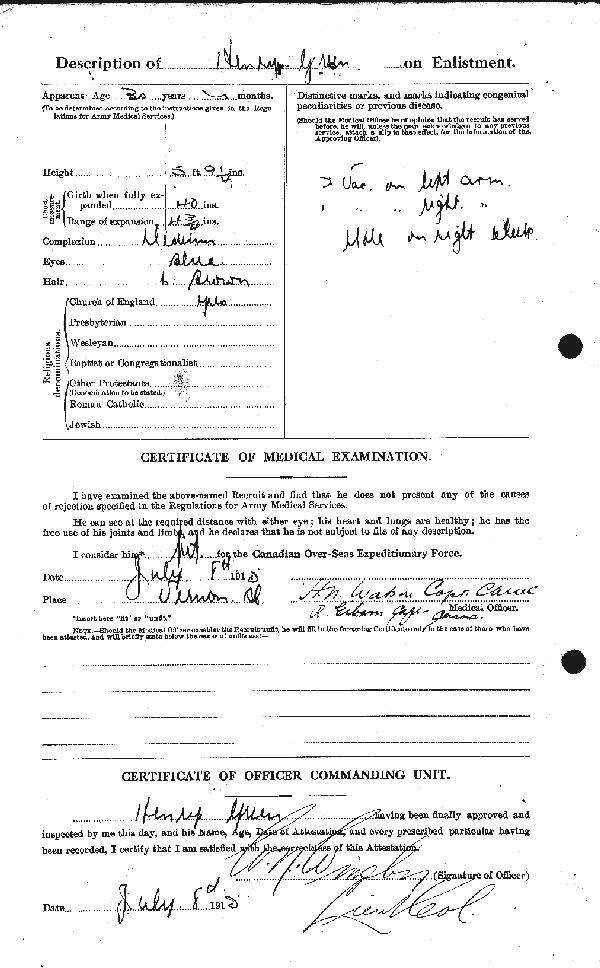 Description of Henry Green on Enlistment.
Apparent Age years months.
(To be determined according to the instructions given in the Regulations for Army Medical Services.)
Height 5 ft 9½ ins.
Chest measurement
Girth when fully expanded 40 ins.
Range of expansion ins.
Complexion Medium
Eyes Blue
Hair Brown
Religious denominations.
Church of England Yes
Presbyterian
Wesleyan
Baptist or Congregationalist
Other Protestants
(Denomination to be stated.)
Roman Catholic
Jewish
Distinctive marks, and marks indicating congenital
peculiarities or previous disease.
(Should the Medical Officer be of opinion that the recruit has served
before, he will, unless the man acknowledges to any previous
service, attach a slip to that effect, for the information of the
Approving Officer).
Vac. on left arm.
" " right "
Mole on right
CERTIFICATE OF MEDICAL EXAMINATION.
I have examined the above-named Recruit and find that he does not present any of the causes
of rejection specified in the Regulations for Army Medical Services.
He can see at the required distance with either eye; his heart and lungs are healthy; he has the
free use of his joints and limbs, and he declares that he is not subject to fits of any description.
I consider him* fit for the Canadian Over-Seas Expeditionary Force.
Date July 8th 1915
Place Vernon
Capt.
Medical Officer.
*Insert here "fit" or "unfit."
NOTE.—Should the Medical Officer consider the Recruit unfit, he will fill in the foregoing Certificate only in the case of those who have
been attested, and will briefly state below the cause of unfitness:—
CERTIFICATE OF OFFICER COMMANDING UNIT.
Henry Green having been finally approved and
inspected by me this day, and his Name, Age, Date of Attestation, and every prescribed particular having
been recorded, I certify that I am satisfied with the correctness of this Attestation.
(Signature of Officer)
Lieut Col.
Date July 8th 1915